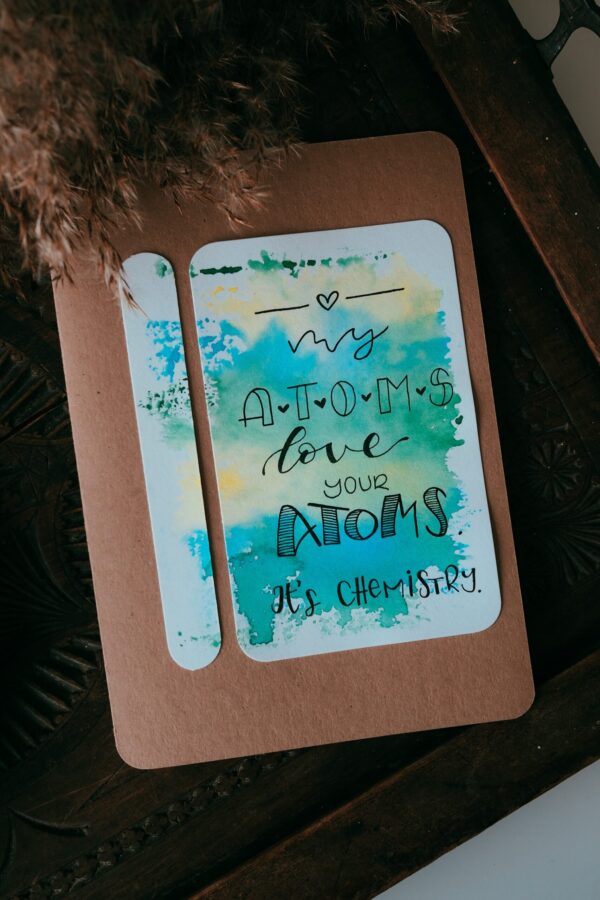 my
A♥T♥O♥M♥S
love
YOUR
ATOMS.
It's CHEMiSTRY.